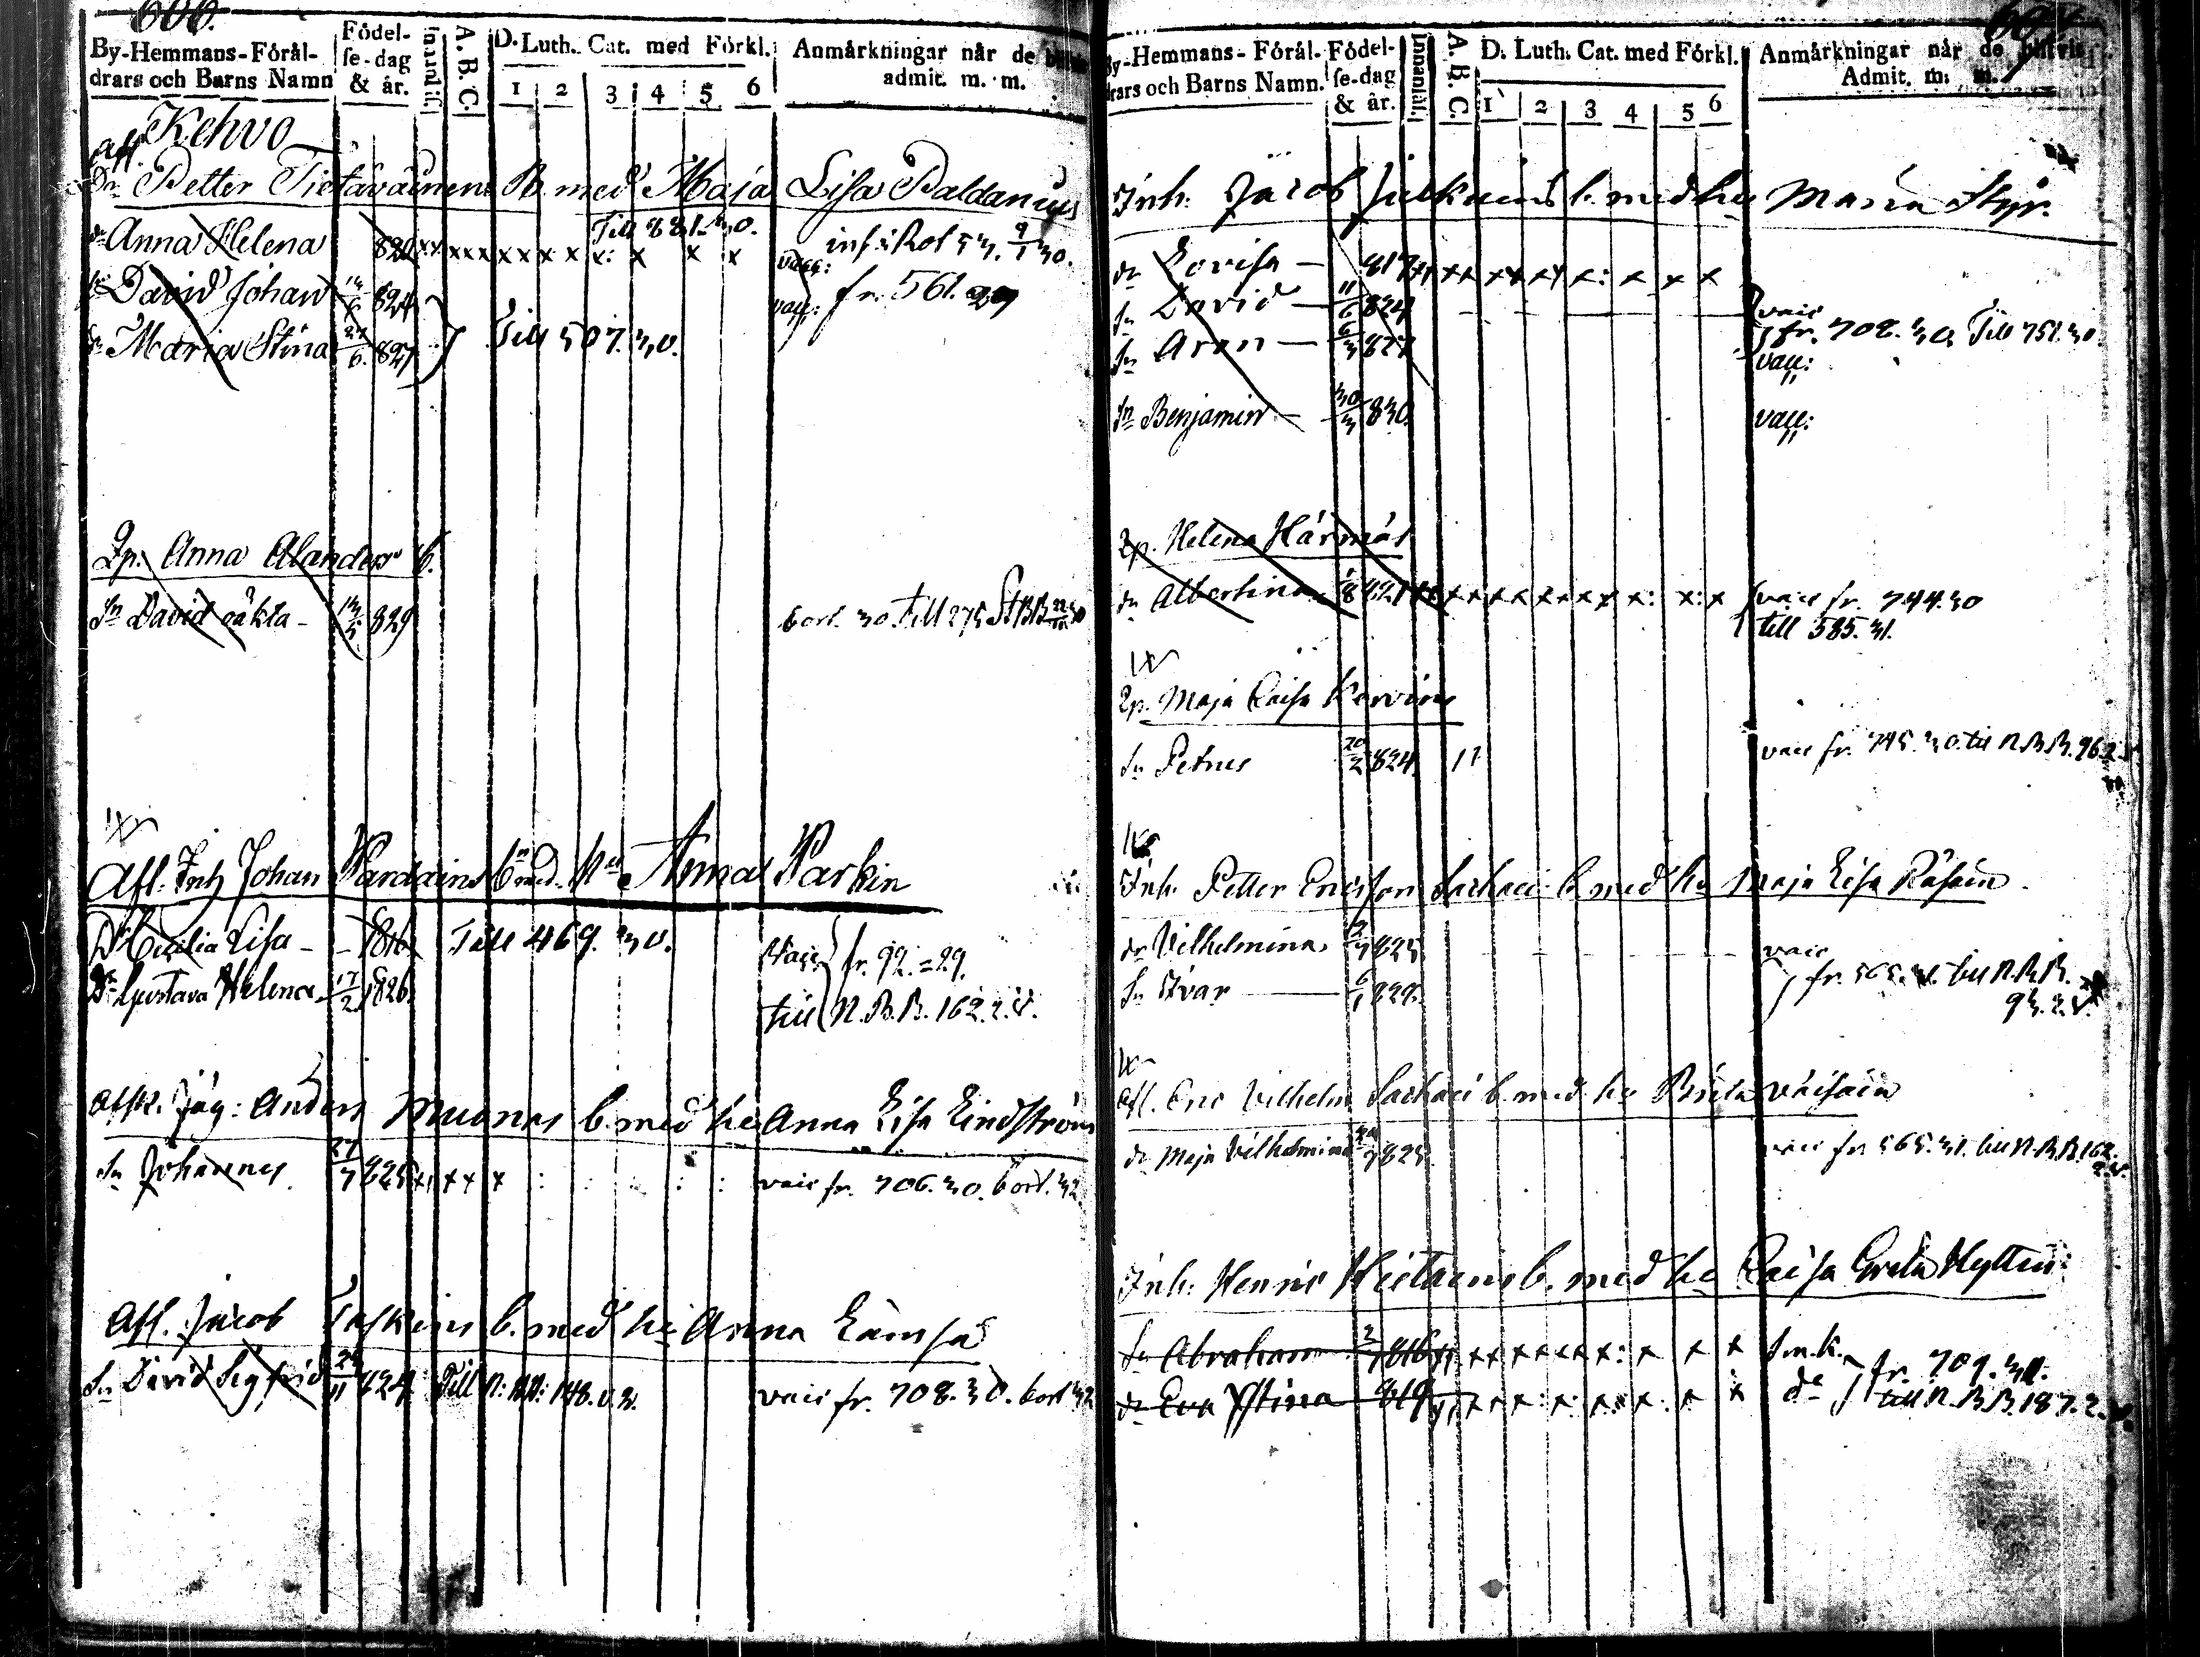 606.
By-Hemmans-Förål-
drars och Barns Namn
Födel-
se-dag
& år.
Innanläs.
A. B. C.
D. Luth. Cat. med Förkl.
1 2 3 4 5 6
Anmårkningar når de
admit. m. m.
Kehvo
Afsk.
Dr. Petter Tietäväinens B. med Maja Lisa Paldanius
Till 881. 30.
dr Anna Helena 820 xx xxx x x x x x: x x x vacc: inf: i Rot 53. 9/1 30.
sn David Johan 824 vacc: fr. 561. 29
dr Maria Stina 27/6. 827 Till 507. 30.
Qp. Anna Alanders b.
sn David oäkta - 829 bort 30. till 275 St BB
Afl. Inh Johan Wardains b. med hu Anna Parkin
Dr Cecilia Lisa - - 1816 Till 469. 30. Vacc fr. 92. = 29.
Dr Gustava Helena 17/2 1826. till N. B. B. 162. 2. V.
Afsk. Jäg: Anders Muonas b. med hu Anna Lisa Lindström
sn Johannes 27/7 825 x x x x x : : : : : vacc fr. 706. 30. bort. 32
Afl. Jacob Taskins b. med hu Anna Lämsä
sn David Sigfrid 24/11 824. Till N: BB: 148. v. 2. vacc fr. 708. 30. bort 32
607.
By-Hemmans-Förål-
drars och Barns Namn.
Födel-
se-dag
& år.
Innanläs.
A. B. C.
D. Luth. Cat. med Förkl.
1 2 3 4 5 6
Anmårkningar når de blifvit
Admit. m. m.
Inh. Jacob Julkuins b. med hu Maria Styr.
dr Lovisa - 817 xx xx xx xx x: x x x
sn David - 11/6 824 vacc
fr. 708. 30. Till 751. 30.
sn Aron - 6/3 827 vacc:
sn Benjamin - 30/3 830. vacc:
Qp. Helena Härmäs
dr Albertina. 1821 x x x x x x x x x: x: x vacc fr. 744. 30
till 585. 31.
Qp. Maja Caisa Korvins
sn Petrus 20/2 824. 11 vacc fr. 745. 30. till N. B. B. 162.
Inh. Petter Ericsson Sachari b. med hu Maja Lisa Räsäin.
dr Vilhelmina. 12/7 825 vacc
fr. 565. 31. till N. B. B.
93. 2. V.
sn Ivar 6/1 829.
Afl. Eric Vilhelm Sachari b. med hu Brita Väisäin
dr Maja Vilhelmina 825 vacc fr 565. 31. till N. B. B. 162.
2. V.
Inh. Henric Hietains b. med hu Caisa Greta Hyttin
sn Abraham 2/7 816 11 x x x x x x: x x x S. m. k. fr. 709. 30.
dr Eva Stina 819 11 x x x: x: x x x: x x do till N. B. B. 187. 2. V.